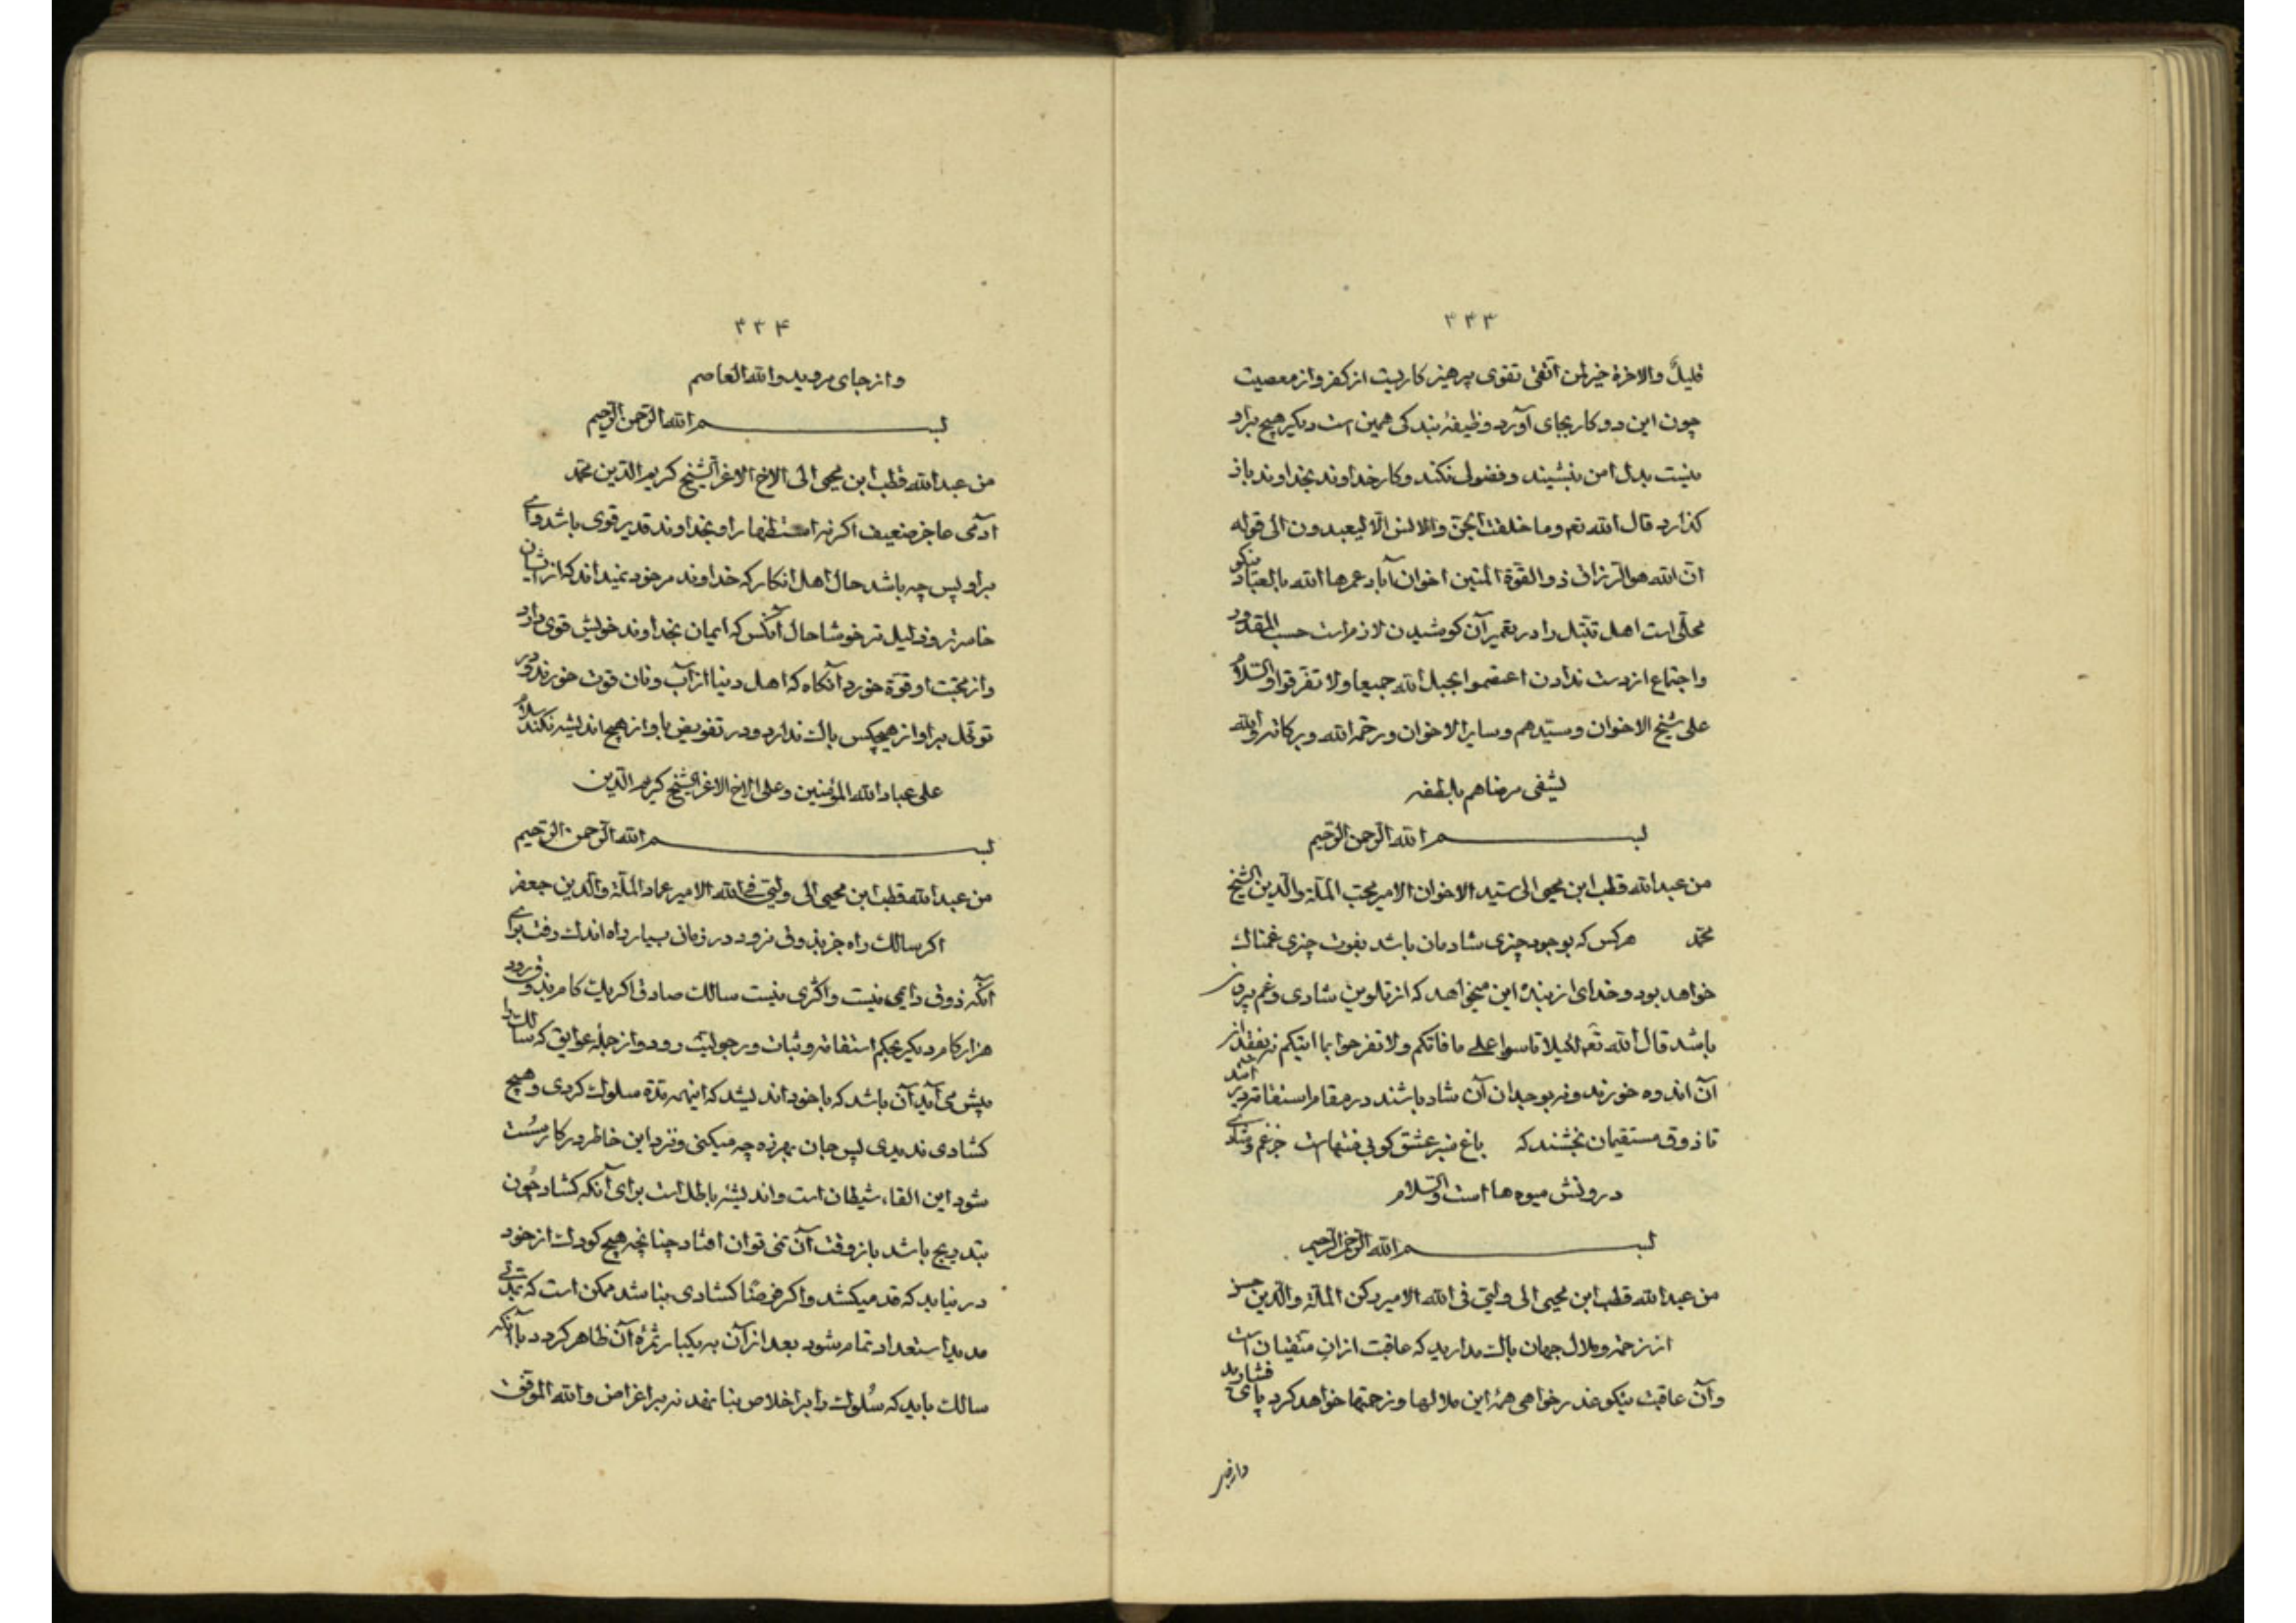 ۳۳۳
قلیل والاخرة خیر لمن اتقی تقوی پرهیز کاریست از کفر و از معصیت
چون این دو کار بجای آورد وظیفهٔ بندکی همین است دیکر هیچ براو
نیست بدل امن بنشیند و فضولی نکند و کار خداوند بخداوند باز
کذارد قال الله تعم وما خلقت الجن والانس الا لیعبدون الی قوله
ان الله هو الرزاق ذو القوة المتین اخوان آباد عمرها الله بالعباد نیکو
محلی است اهل تبتل را در تعمیر آن کوشیدن لازم است حسب المقدور
واجتماع از دست ندادن اعتصموا بحبل الله جمیعا ولا تفرقوا والسلام
علی شیخ الاخوان وسیدهم وسایر الاخوان ورحمة الله وبرکاته والله
یشفی مرضاهم بلطفه
بسم الله الرحمن الرحیم
من عبدالله قطب ابن محیی الی سید الاخوان الامیر محب الملة والدین الشیخ
محمد هرکس که بوجود چیزی شادمان باشد بفوت چیزی غمناک
خواهد بود و خدای از بنده این میخواهد که از تلوین شادی و غم بیرون
باشد قال الله تعم لکیلا تاسوا علی ما فاتکم ولا تفرحوا بما اتیکم نه بفقد از
آن اندوه خورند و نه بوجدان آن شاد باشند در مقام استقامت
تا ذوق مستقیمان بچشند که باغ سبز عشق کو بی منتهاست جز غم و شادی
دروبش میوه ها است والسلام
بسم الله الرحمن الرحیم
من عبدالله قطب ابن محیی الی ولیی فی الله الامیر رکن الملة والدین حسن
از زحمت و ملال جهان باک مدارید که عاقبت ازان متقیان است
وآن عاقبت نیکو عذر خواهی همهٔ این ملالها و زحمتها خواهد کرد پای فشارید
۳۳۴
واز جای مروید والله العاصم
بسم الله الرحمن الرحیم
من عبدالله قطب ابن محیی الی الاخ الاعز الشیخ کریم الدین محمد
ادمی عاجز ضعیف اکر نه استظهار او بخداوند قدیر قوی باشد وای
براو پس چه باشد حال اهل انکار که خداوند مر خود نمیداند که از ایشان
خاسرتر و ذلیل تر خوشا حال آنکس که ایمان بخداوند خویش قوی دارد
واز محبت او قوة خورد آنکاه که اهل دنیا از آب و نان قوت خورند و در
توکل براو از هیچکس باک ندارد و در تفویض باو از هیچ اندیشه نکند سلام
علی عباد الله المؤمنین وعلی الاخ الاعز الشیخ کریم الدین
بسم الله الرحمن الرحیم
من عبدالله قطب ابن محیی الی ولیی فی الله الامیر عماد الملة والدین جعفر
اکر سالک راه جز بذوق نرود در زمان بسیار راه اندک رفت برای
آنکه ذوق دایمی نیست و اکثری نیست سالک صادق اکر یک کام بذوق رود
هزار کام دیکر بحکم استقامت و ثبات و رجولیت رود و از جملهٔ عوایق که سالک را
پیش می آید آن باشد که با خود اندیشد که اینهمه مدة سلوک کردی و هیچ
کشادی ندیدی پس جان بهرزه چه میکنی و نزد این خاطر در کار سست
شود این القاء شیطان است و اندیشهٔ باطل است برای آنکه کشاد چون
بتدریج باشد باز وقت آن نمی توان افتاد چنانچه هیچ کودک از خود
در نیابد که قد میکشد و اکر فرضا کشادی نباشد ممکن است که بمدتی
مدید استعداد تمام شود بعد از آن به یکبار ثمرهٔ آن ظاهر کردد با آنکه
سالک باید که سلوک را بر اخلاص بنا نهد نه بر اغراض والله الموفق